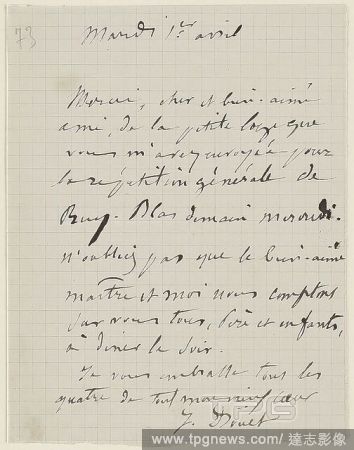 73
Mardi 1er avril
Merci, cher et bien-aimé
ami, de la petite loge que
vous m'avez envoyée pour
la répétition générale de
Ruy-Blas demain mercredi.
n'oubliez pas que le bien-aimé
maître et moi nous comptons
sur vous tous, Père et enfants,
à diner le soir.
Je vous embrasse tous les
quatre de tout mon vieux cœur
J. Drouet
www.tpgnews.com / 達志影像